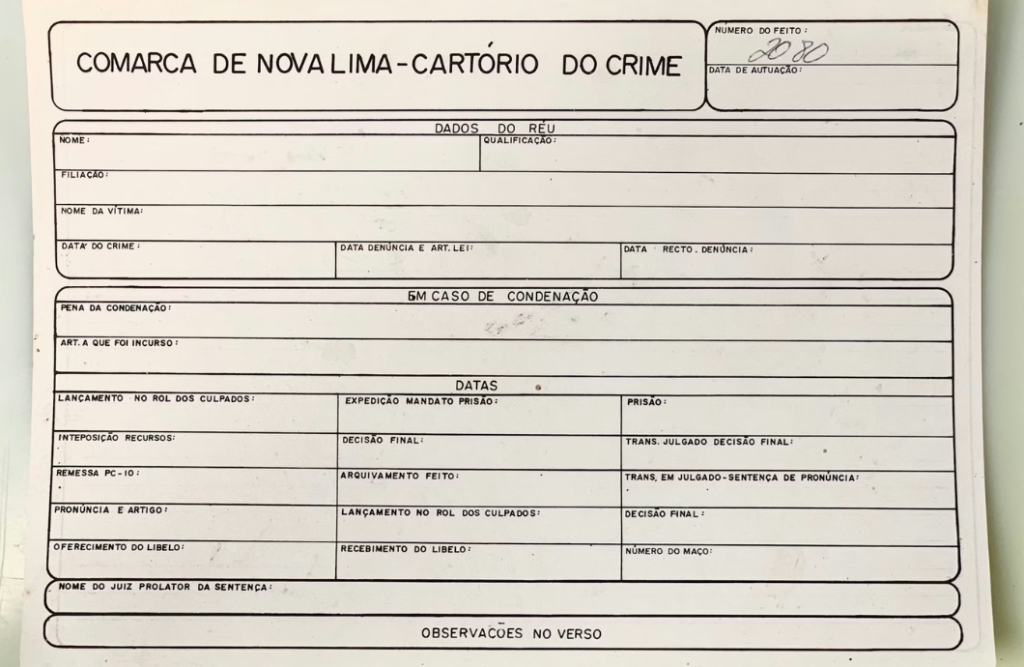 COMARCA DE NOVA LIMA-CARTÓRIO DO CRIME
NUMERO DO FEITO:
2080
DATA DE AUTUAÇÃO:
DADOS DO RÉU
NOME: QUALIFICAÇÃO:
FILIAÇÃO:
NOME DA VÍTIMA:
DATA DO CRIME: DATA DENÚNCIA E ART. LEI: DATA RECTO. DENÚNCIA:
EM CASO DE CONDENAÇÃO
PENA DA CONDENAÇÃO:
ART. A QUE FOI INCURSO:
DATAS
LANÇAMENTO NO ROL DOS CULPADOS: EXPEDIÇÃO MANDATO PRISÃO: PRISÃO:
INTEPOSIÇÃO RECURSOS: DECISÃO FINAL: TRANS. JULGADO DECISÃO FINAL:
REMESSA PC-10: ARQUIVAMENTO FEITO: TRANS, EM JULGADO-SENTENÇA DE PRONÚNCIA:
PRONÚNCIA E ARTIGO: LANÇAMENTO NO ROL DOS CULPADOS: DECISÃO FINAL:
OFERECIMENTO DO LIBELO: RECEBIMENTO DO LIBELO: NÚMERO DO MAÇO:
NOME DO JUIZ PROLATOR DA SENTENÇA:
OBSERVACÕES NO VERSO